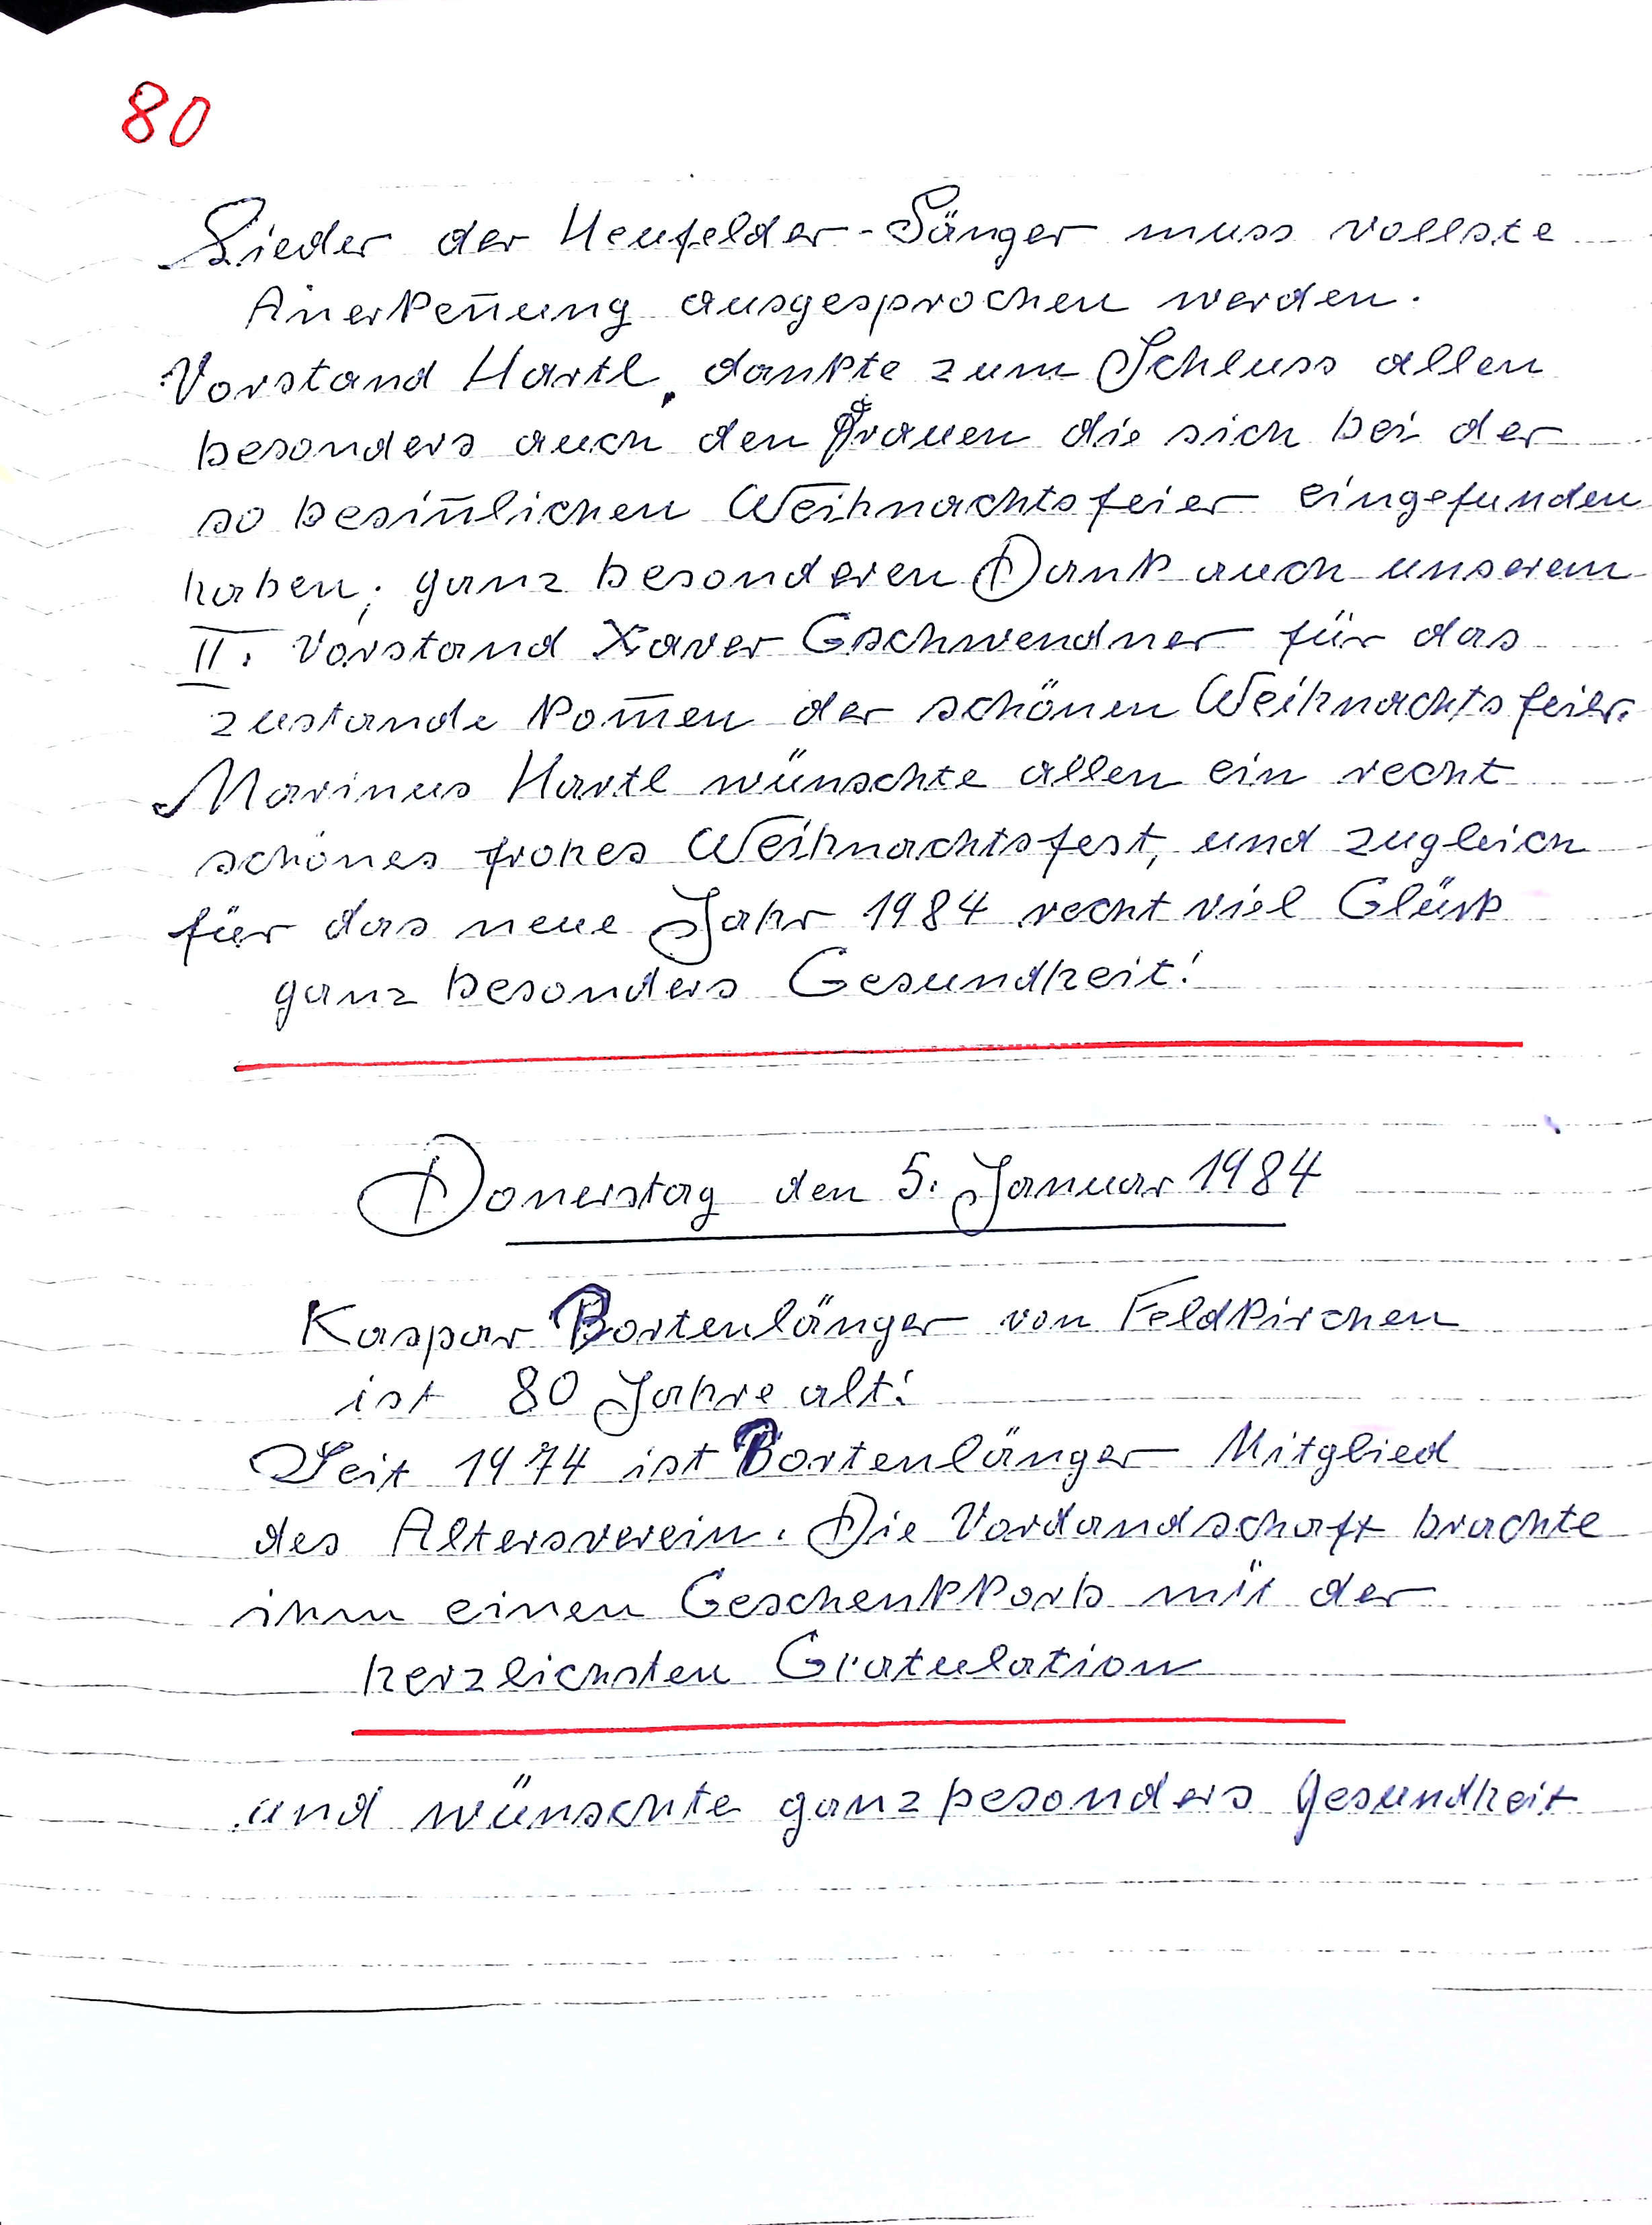 80
Lieder der Heufelder-Sänger muss vollste
Anerken̄ung ausgesprochen werden.
Vorstand Hartl, dankte zum Schluss allen
besonders auch den Frauen die sich bei der
so besin̄lichen Weihnachtsfeier eingefunden
haben; ganz besonderen Dank auch unserem
II. Vorstand Xaver Gschwendner für das
zustande kom̄en der schönen Weihnachtsfeier.
Marinus Hartl wünschte allen ein recht
schönes frohes Weihnachtsfest, und zugleich
für das neue Jahr 1984 recht viel Glück
ganz besonders Gesundheit!
Donerstag den 5. Januar 1984
Kaspar Bortenlänger von Feldkirchen
ist 80 Jahre alt!
Seit 1974 ist Bortenlänger Mitglied
des Altersverein. Die Vordandschaft brachte
ihm einen Geschenkkorb mit der
herzlichsten Gratulation
und wünschte ganz besonders Gesundheit